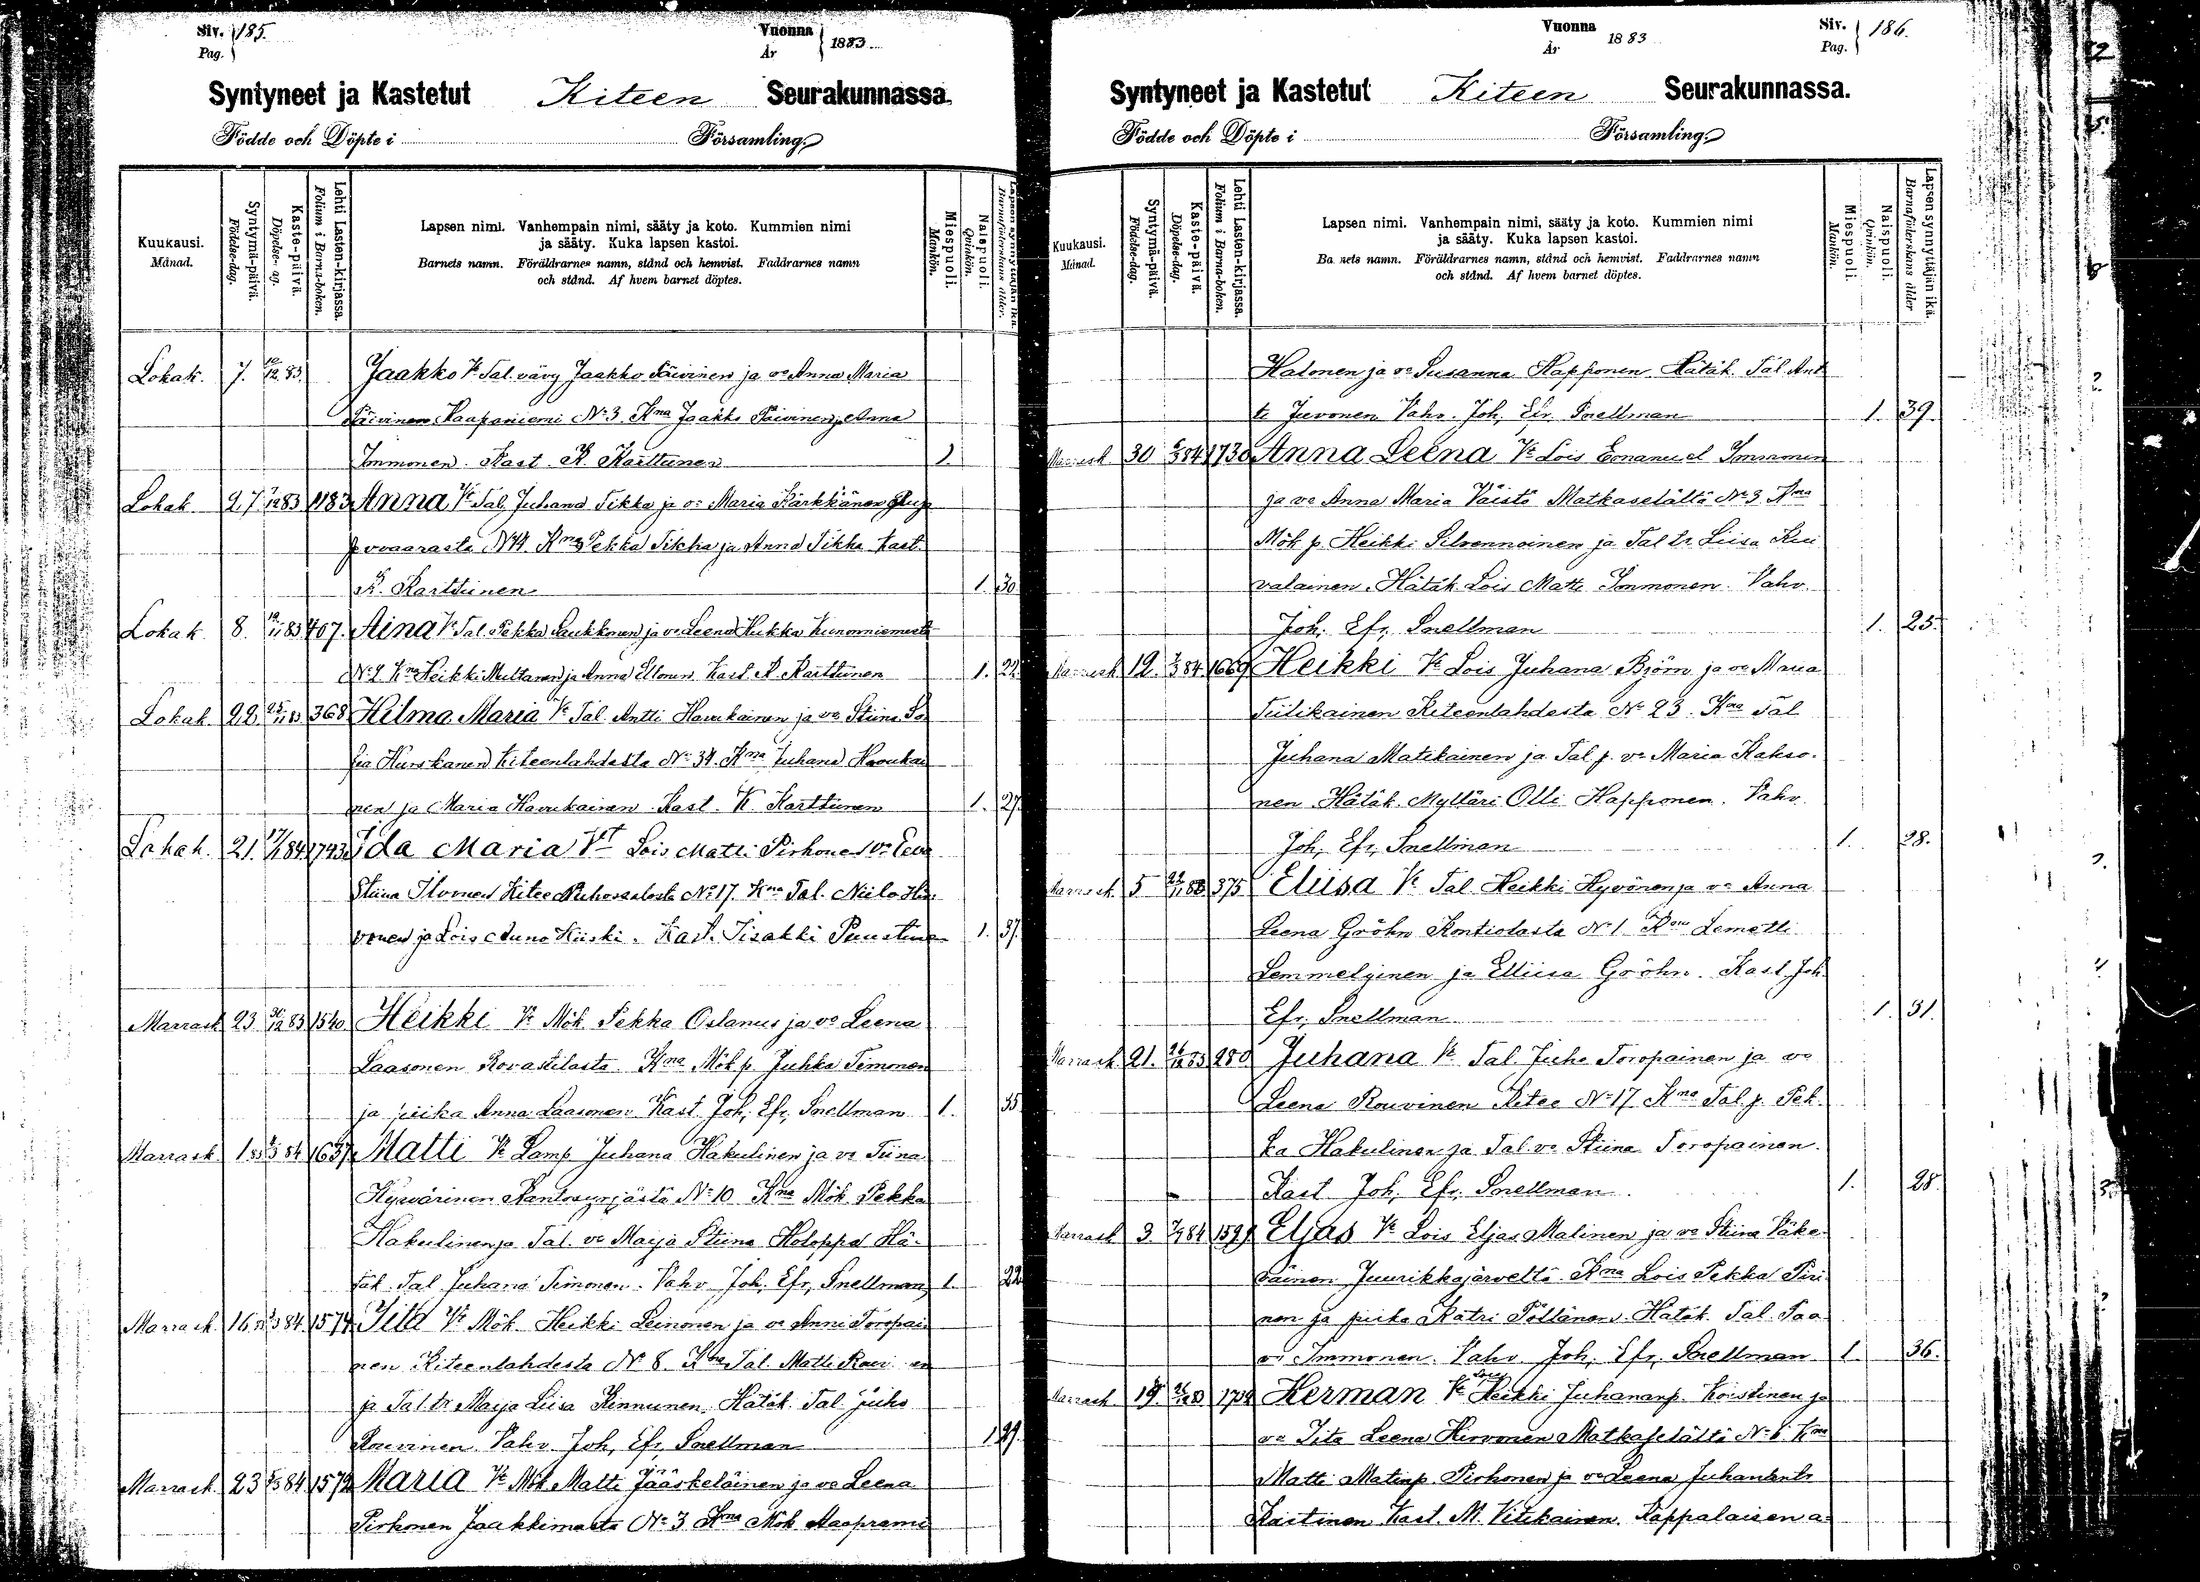 Siv. 185.
Pag.
Vuonna 1883
År
Syntyneet ja Kastetut Kiteen Seurakunnassa.
Födde och Döpte i Församling.
Kuukausi.
Månad.
Syntymä-päivä.
Födelse-dag.
Kaste-päivä.
Döpelse-dag.
Lehti Lasten-kirjassa.
Folium i Barna-boken.
Lapsen nimi. Vanhempain nimi, sääty ja koto. Kummien nimi
ja sääty. Kuka lapsen kastoi.
Barnets namn. Föräldrarnes namn, stånd och hemvist. Faddrarnes namn
och stånd. Af hvem barnet döptes.
Miespuoli.
Mankön.
Naispuoli.
Qvinkön.
Lapsen synnyttäjän ikä.
Barnaföderskans ålder.
Lokak. 7. Jaakko Vt Tal. vävy Jaakko Päivinen ja vo Anna Maria
Päivinen No 3. Kma Jaakko Päivinen ja Anna
Immonen. Kast. K. Karttunen 1.
Lokak. 27 1183 Anna Vt Tal. Juhana Tikka ja vo Maria Kärkkänen
Kma Pekka Tikka ja Anna Tikka Kast.
K. Karttunen 1. 30
Lokak. 8. 407. Aina Vt Tal. Pekka Laukkanen ja vo Leena Kukka
Kma Heikki Multanen ja Anna Kast. K. Karttunen 1. 22
Lokak. 22. 368 Hilma Maria Vt Tal. Antti Havukainen ja vo Stiina So
fia Hurskanen Kiteenlahdesta No 34. Kma Juhana Havukai
nen ja Maria Havukainen Kast. K. Karttunen 1. 27
Lokak. 21. Ida Maria Vt Lois Matti Pirhonen vo Eeva
Stiina Kitee No 17. Kma Tal. Niilo
vonen ja Lois Kiiski. Kast. Iisakki Puustinen 1. 37.
Marrask 23 1540 Heikki Vt Mök. Pekka Oslanus ja vo Leena
Laasonen Rovastilasta Kma Mök p. Juhka Timonen
ja piika Anna Laasonen Kast. Joh. Efr. Snellman 1. 35
Marrask 1 1637 Matti Vt Lamp. Juhana Hakulinen ja vo Tiina
Hyvärinen No 10 Kma Mök. Pekka
Hakulinen ja Tal. vo Maija Stiina Holoppa Hä-
täk. Tal. Juhana Timonen. Vahv. Joh. Efr. Snellman 1. 22
Marrask 16 1574 Iita Vt Mök. Heikki Leinonen ja vo Anni Toropai
nen Kiteenlahdesta No 8. Kma Tal. Matti
ja Tal. tr Maija Liisa Kinnunen, Hätäk. Tal. Juho
Rouvinen Vahv. Joh. Efr. Snellman 1. 29.
Marrask 23 1572 Maria Vt Mök. Matti Jääskeläinen ja vo Leena
Pirhonen Jaakkimasta No 3 Kma Mök.
Vuonna 1883
År
Siv. 186.
Pag.
Syntyneet ja Kastetut Kiteen Seurakunnassa.
Födde och Döpte i Församling.
Kuukausi.
Månad.
Syntymä-päivä.
Födelse-dag.
Kaste-päivä.
Döpelse-dag.
Lehti Lasten-kirjassa.
Folium i Barna-boken.
Lapsen nimi. Vanhempain nimi, sääty ja koto. Kummien nimi
ja sääty. Kuka lapsen kastoi.
Barnets namn. Föräldrarnes namn, stånd och hemvist. Faddrarnes namn
och stånd. Af hvem barnet döptes.
Miespuoli.
Mankön.
Naispuoli.
Qvinkön.
Lapsen synnyttäjän ikä.
Barnaföderskans ålder
Halonen ja vo Susanna Happonen Hätäk. Tal. Ant
ti Juvonen Vahv. Joh. Efr. Snellman 1. 39.
Marrask 30 1730 Anna Leena Vt Lois Emanuel Immonen
ja vo Anna Maria Väistö Matkaselältä No 3 Kma
Mök p. Heikki Silvennoinen ja Tal. tr. Liisa Kui
valainen. Hätäk. Lois Matti Immonen. Vahv.
Joh. Efr. Snellman 1. 25.
Marrask 12. 1669 Heikki Vt Lois Juhana Björn ja vo Maria
Tiilikainen Kiteenlahdesta No 23. Kma Tal.
Juhana Matikainen ja Tal p. vo Maria Kakso-
nen Hätäk. Mylläri Olli Happonen. Vahv.
Joh. Efr. Snellman 1. 28.
Marrask 5 375 Eliisa Vt Tal. Heikki Hyvönen ja vo Anna
Leena Gröhn Kontiolasta No 1 Kma Lemetti
Lemmetyinen ja Elliisa Gröhn. Kast. Joh.
Efr. Snellman 1. 31.
Marrask 21. 280 Juhana Vt Tal. Juho Toropainen ja vo
Leena Rouvinen Kitee No 17 Kma Tal. p. Pek-
ka Hakulinen ja Tal. vo Stiina Toropainen.
Kast. Joh. Efr. Snellman. 1. 28.
Marrask 3. Eljas Vt Lois Eljas Malinen ja vo Stiina Väke-
väinen Juurikkajärveltä. Kma Lois Pekka Piri
nen ja piika Katri Pöllänen. Hätäk. Tal. Paa
vo Immonen. Vahv. Joh. Efr. Snellman 1. 36.
Marrask 19. Herman Vt Lois Heikki Juhananp. Koistinen ja
vo Iita Leena Hirvonen Matkaselältä No 6. Kma
Matti Matinp. Pirhonen ja vo Leena Juhantytr.
Kast. M. Vitikainen. Kappalaisen a-